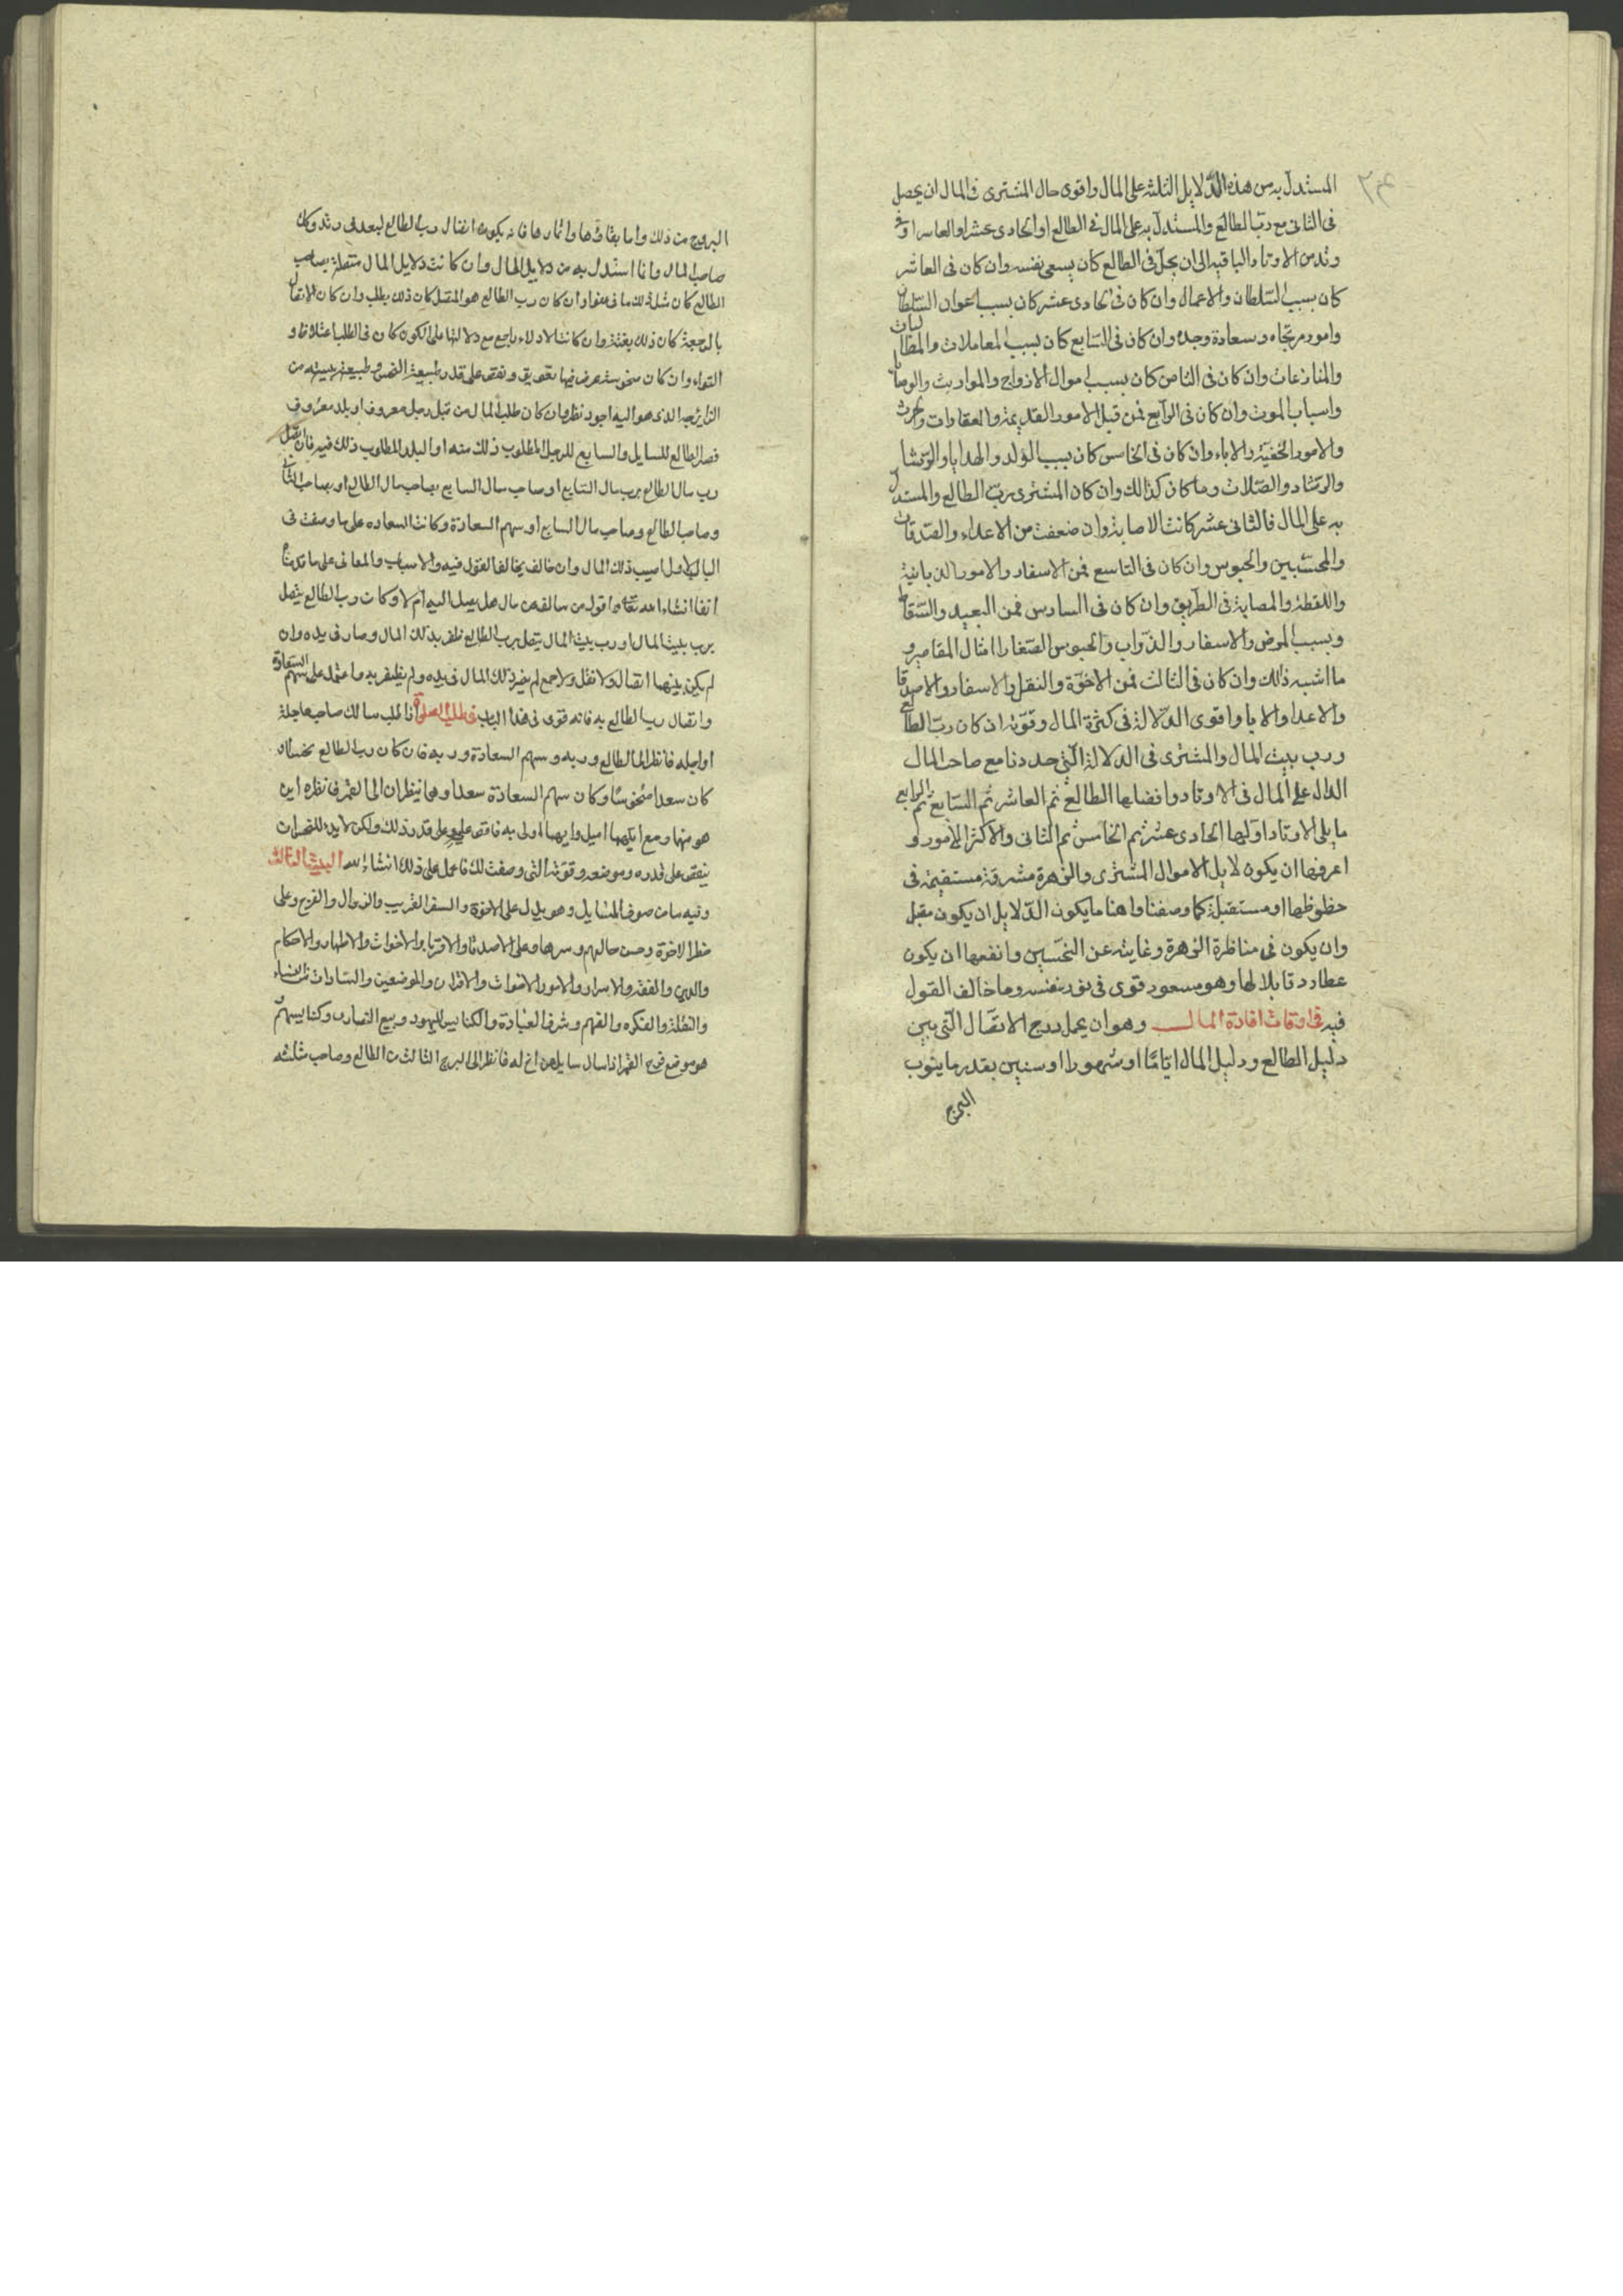 المستدل به من هذه الدّلايل الثلثه على المال واقوى حال المشترى فى المال ان يحصل
فى الثانى مع ربّ الطالع والمستدلّ به على المال فى الطالع او الحادى عشر او العاشر او فى
وتد من الاوتاد الباقيه الى ان يحلّ فى الطالع كان بسعى نفسه وان كان فى العاشر
كان بسبب السّلطان والاعمال وان كان فى الحادى عشر كان بسبب اعوان السّلطان
وامور مرتجاه وسعادة وجدّ وان كان فى السّابع كان بسبب المعاملات والمطالبات
والمنازعات وان كان فى الثامن كان بسبب اموال الازواج والمواريث والوصايا
واسباب الموت وان كان فى الرابع فمن قبل الامور القديمة والعقارات والحرث
والامور الخفيّة والاباء وان كان فى الخامس كان بسبب الولد والهدايا والرّشا
والرّشاد والصّلات وما كان كذالك وان كان المشترى بربّ الطالع والمستدل
به على المال فالثانى عشر كانت الاصابة وان ضعفت من الاعداء والصّدقات
والمحتسّبين والحبوس وان كان فى التاسع فمن الاسفار والامور الربانية
واللقطة والمصابة فى الطّريق وان كان فى السادس فمن العبيد والسّقاط
وبسبب المرض والاسفار والدّواب والحبوس الصّغار امثال المقاصير و
ما اشبه ذالك وان كان فى الثالث فمن الاخوّة والنقل والاسفار والاصدقا
والاعدا والابا واقوى الدّلالة فى كثرة المال وقوّته ان كان ربّ الطالع
ورب بيت المال والمشترى فى الدلالة الّتى حددنا مع صاحب المال
الدال على المال فى الاوتاد وافضلها الطالع ثم العاشر ثم السّابع ثم الرابع
ما يلى الاوتاد اوّلها الحادى عشر ثم الخامس ثم الثانى والاكثر الامور و
اعرفها ان يكون لايل الاموال المشترى والزهرة مشرقة مستقيمة فى
حظوظها او مستقبلة كما وصفنا واهنا ما يكون الدّلايل ان يكون مقبل
وان يكون فى مناظرة الزهرة وغايته عن النحسّين وانفعها ان يكون
عطارد قابلا لها وهو مسعود قوى فى نور نفسه وما خالف القول
فيه فى اوقات افادة المال وهو ان يعمل درج الاتصّال الّتى بين
دليل الطالع ودليل المال ايّامًا او شهورا او سنين بقدر ما ينوب
البروج
البروج من ذلك واما بقاؤها واثارها فانه يكون اتصال رب الطالع لبعد فى وتد وكان
صاحب المال وانا استدل به من دلايل المال وان كانت دلايل المال متصلة بصاحب
الطالع كان وان كان رب الطالع هو المتصل كان ذلك بطلب وان كان الاتصال
بالرجعة كان ذلك بغتة وان كانت
التواء وان كان على قدر طبيعة النحس وطبيعة بيته من
هو اليه اجود نظر فان كان طلب المال من قبل رجل معروف او بلد معروف
فصير الطالع للسايل والسابع للرجل المطلوب ذلك منه او البلد المطلوب ذلك فيه فان اتصل
رب مال الطالع برب مال السّابع او صاحب مال السابع بصاحب مال الطالع او
وصاحب الطالع وصاحب مال السابع او سهم السعادة وكانت السعاده على ما وصفت فى
الباب الاول اصيب ذلك المال وان خالف يخالف القول فيه والاسباب والمعانى على ما
انفا انشاء الله تعا واقول من سالف عن مال هل يصل اليه ام لا وكان رب الطالع يتصل
برب بيت المال او رب بيت المال يتصل برب الطالع ظفر بذلك المال وصار فى يده وان
لم يكن بينهما اتصال ولا نقل ولا جمع لم يصر ذلك المال فى يده ولم يظفر به واعتمد على سهم السعادة
واتصال رب الطالع به فانه قوى فى هذا الباب فى طلب اذا طلب سالك صاحب عاجلة
او اجله فانظر الى الطالع وربه وسهم السعادة وربه فان كان رب الطالع نحسًا او
كان سعدا منحوسًا وكان سهم السعادة سعدا وهما ينظران الى القمر فى نظره اين
هو منها ومع ايّهما اميل وايهما اولى به فاقض عليه على قدر ذلك ولكن لابد
ينقص على قدره وموضعه وقوّته التى وصفت لك فاعمل على ذلك انشاء الله البيت الثالث
وفيه من صنوف المسايل وهو يدل على الاخوة والسفر القريب والزوال والفرج وعلى
الاخوة وحسن حالهم وسرها وعلى الاصدقا والاقربا والاخوات والاطهار والاحكام
والدين والفقه والاسرار والامور والمرضعين والسادات من النساء
والنقلة والفكره والفهم وشرف العبادة والكنايس لليهود وبيع النصارى وكنايسهم
هو موضع فرح القمر اذا سال سايل عن اخ له فانظر الى البرج الثالث من الطالع وصاحب مثلثه